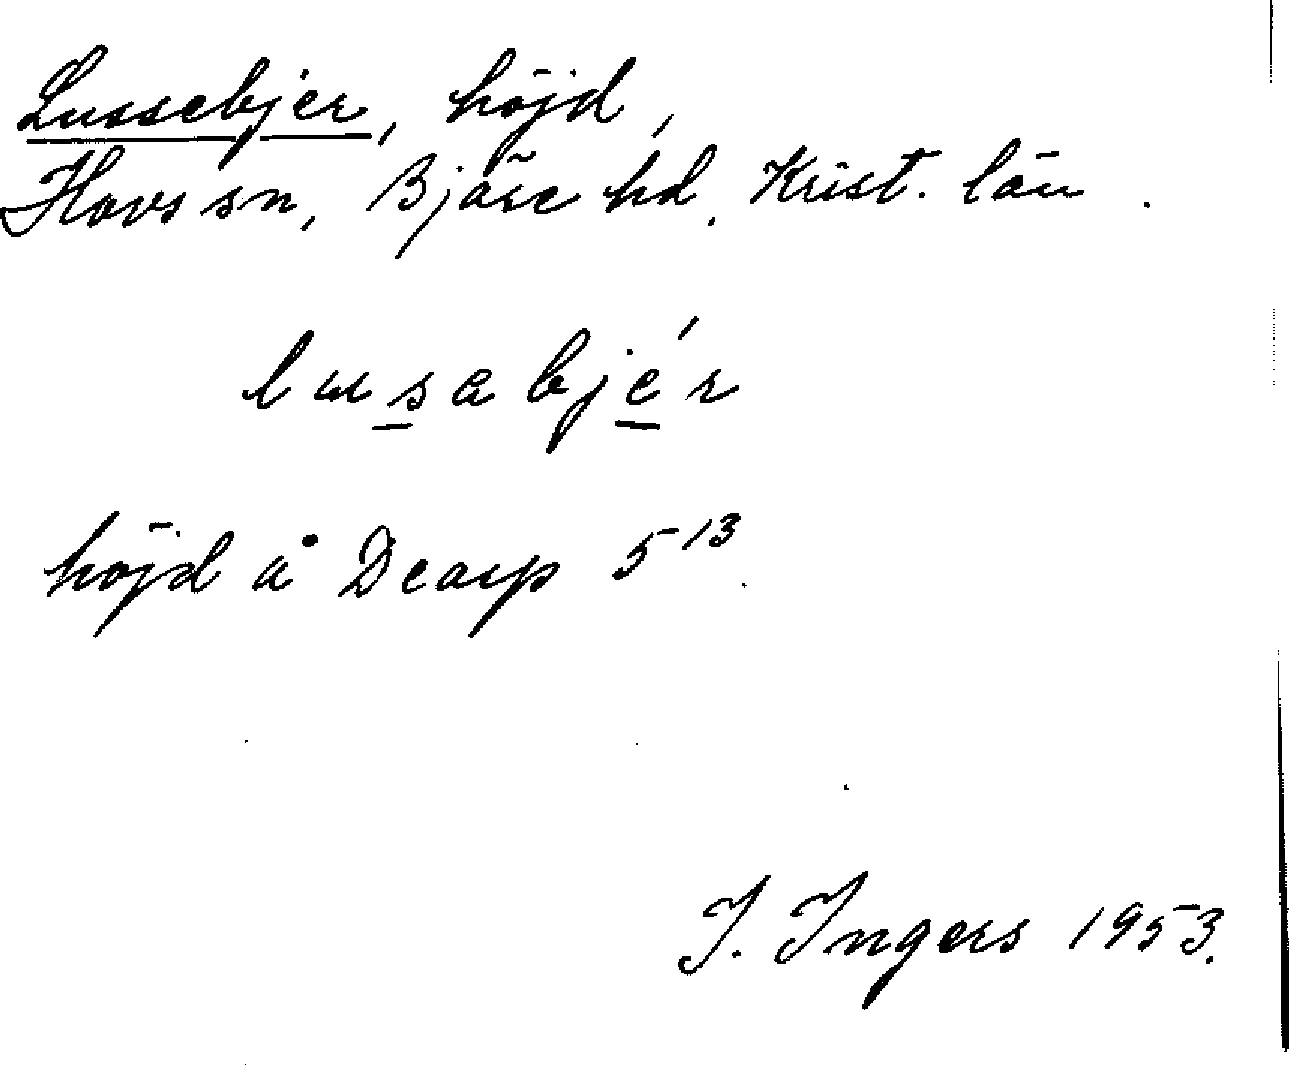 Lussebjer, höjd,
Hovs sn, Bjäre hd. Krist. län.
lusabjér
höjd å Dearp 5¹³.
I. Ingers 1953.